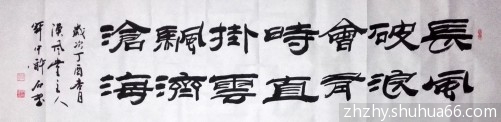 長風
破浪
會有
時直
掛雲
颿濟
滄海
歲次丁酉月
漢風堂主人
書
zhzhy.shuhua66.com